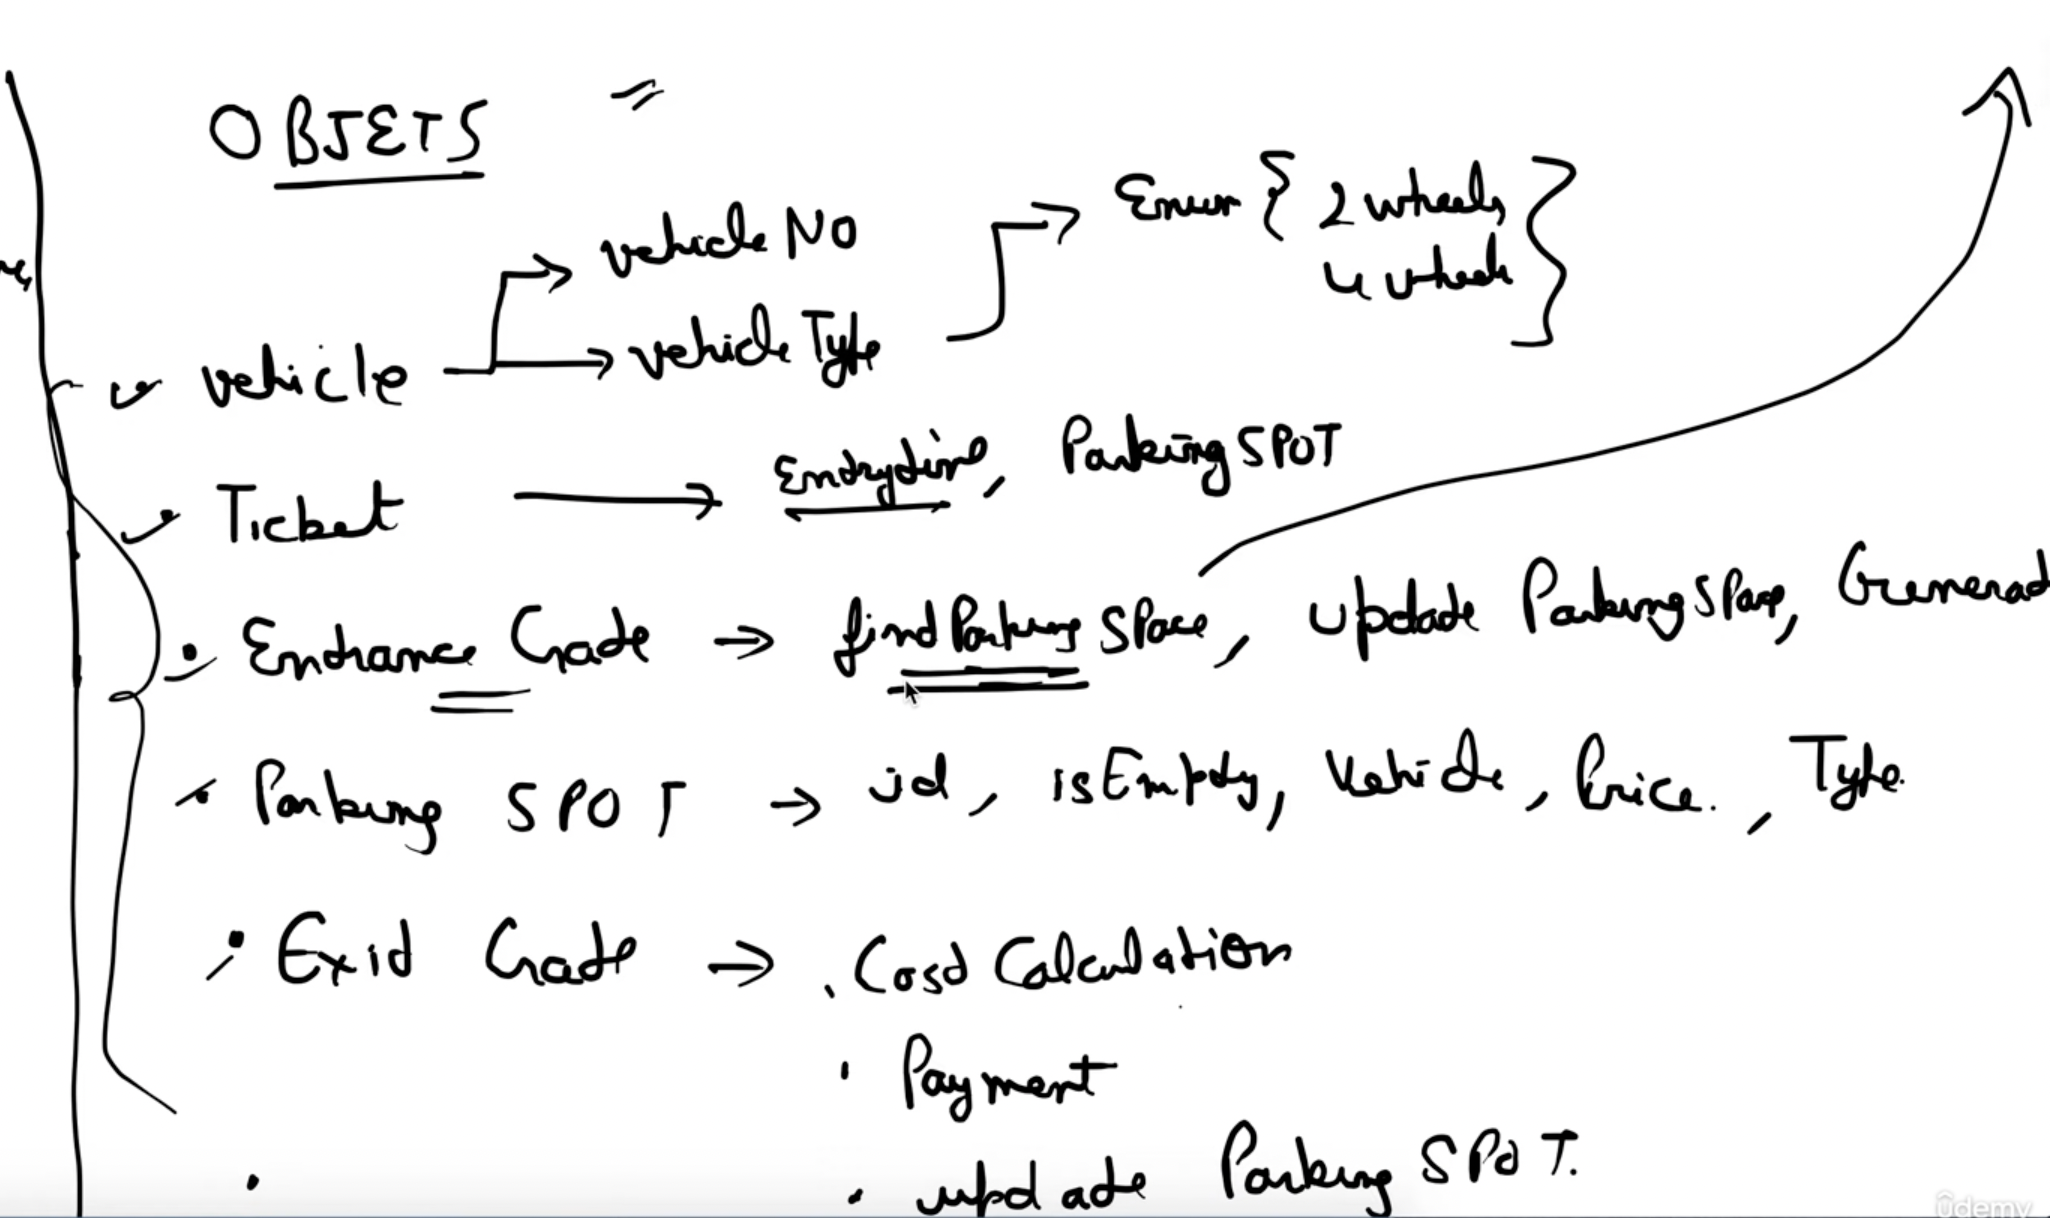 OBJETS
vehicle No
Enum { 2 wheels,
4 wheels }
vehicle → vehicle Type
Ticket → Entrytime, Parking SPOT
Entrance Gate → find Parking Space, update Parking Space, Generat
Parking SPOT → id, isEmpty, Vehicle, Price. , Type.
Exit Gate → . Cost Calculation
. Payment
. update Parking SPOT.
ûdemy